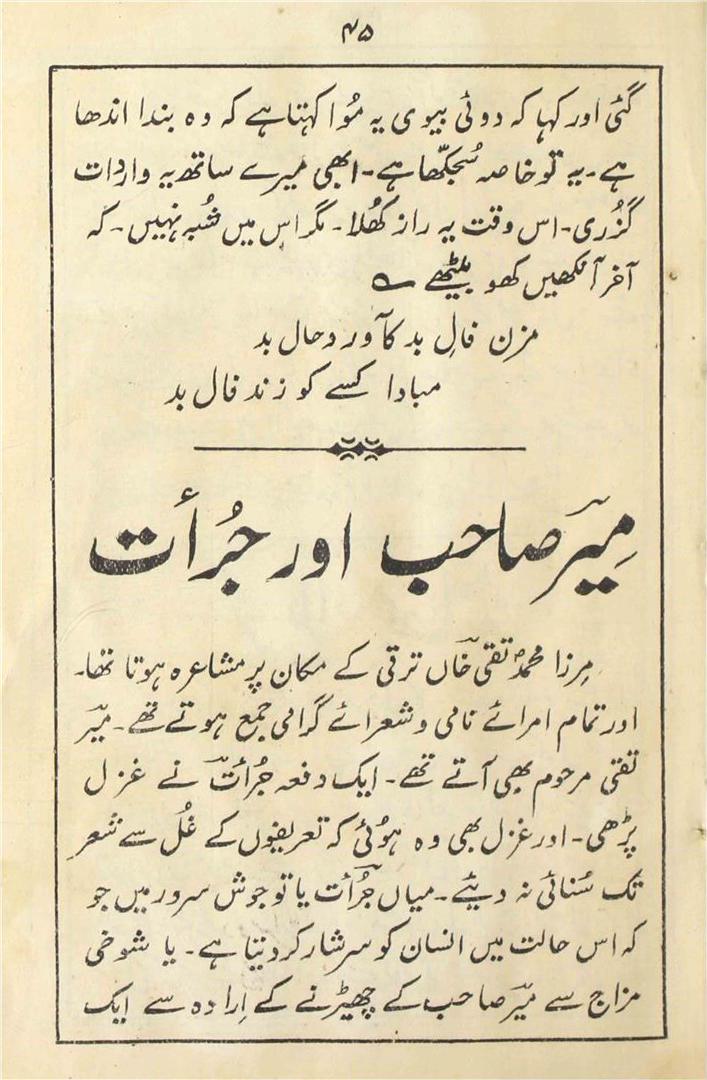 ۴۵
گئی اور کہا کہ دوئی بیوی یہ مُوا کہتا ہے کہ وہ بندا اندھا
ہے۔ یہ تو خاصہ سُجکھّا ہے۔ ابھی میرے ساتھ یہ واردات
گزُری۔ اس وقت یہ راز کھُلا۔ مگر اس میں شُبہ نہیں۔ کہ
آخر آنکھیں کھو بیٹھے ؎
مزن فالِ بد کآورد حال بد
مبادا کسے کو زند فال بد
مِیرؔ صاحب اور جُرأت
مِرزا محمدؐ تقی خاںؔ ترقی کے مکان پر مشاعرہ ہوتا تھا۔
اور تمام امرائے نامی و شعرائے گرامی جمع ہوتے تھے۔ میرؔ
تقی مرحوم بھی آتے تھے۔ ایک دفعہ جُرأتؔ نے غزل
پڑھی۔ اور غزل بھی وہ ہوُئی کہ تعریفوں کے غُل سے شعر
تک سُنائی نہ دیئے۔ میاں جُرأت یا تو جوش سرور میں جو
کہ اس حالت میں انسان کو سرشار کر دیتا ہے۔ یا شوخی
مزاج سے میرؔ صاحب کے چھیڑنے کے اِرادہ سے ایک